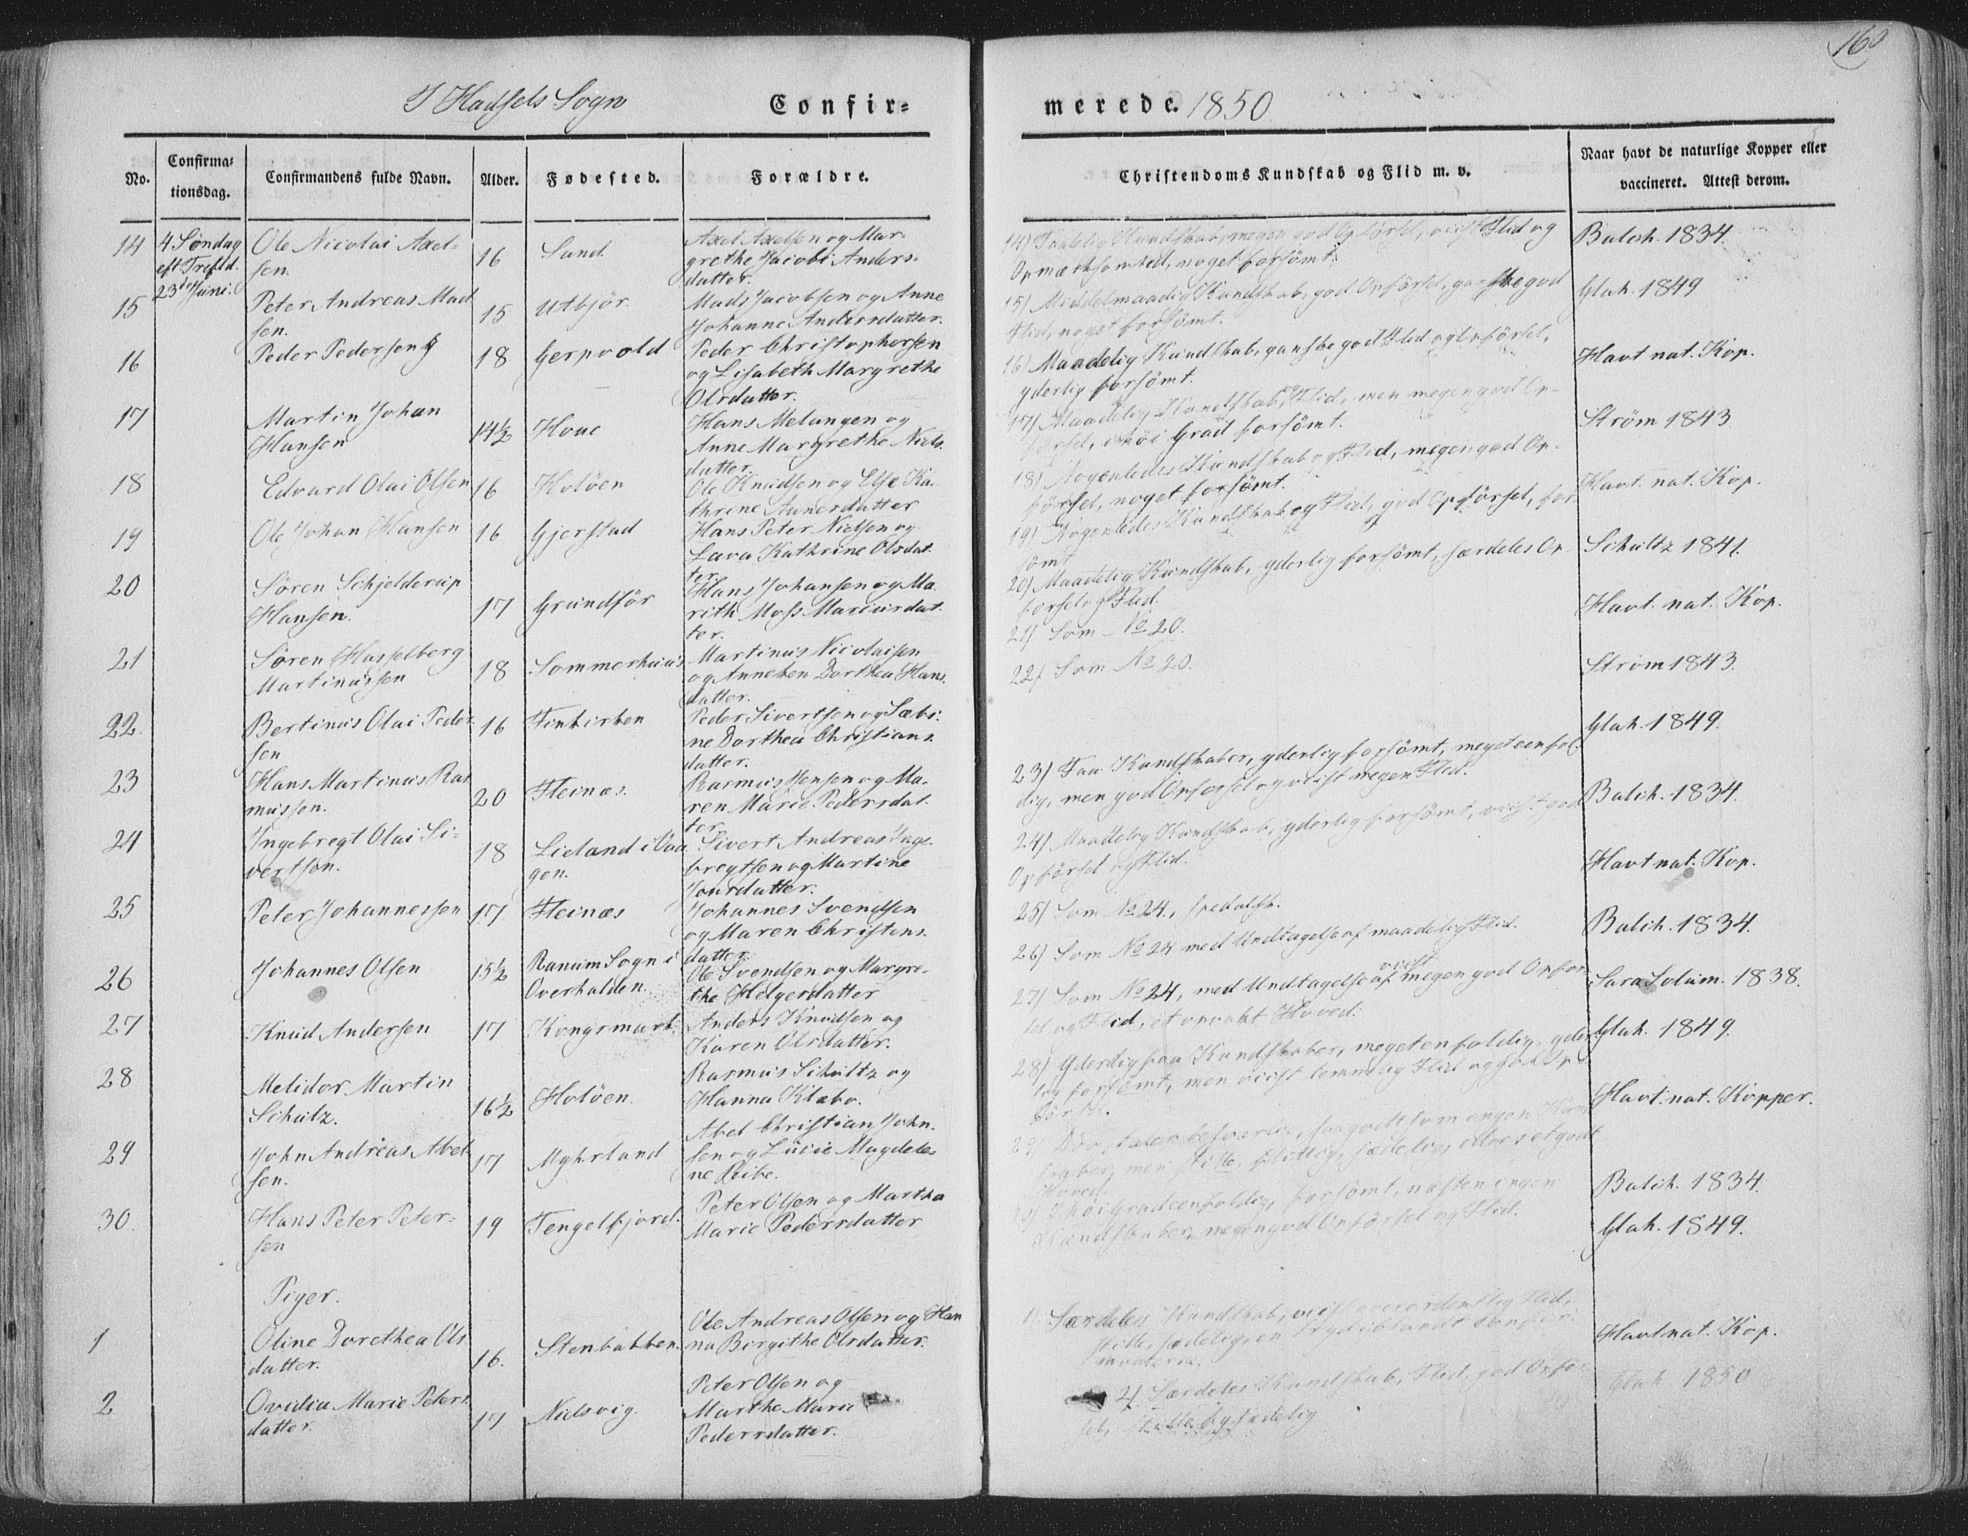 160
I Hadsels Sogn
Confir=
merede. 1850
No.
Confirma=
tionsdag.
Confirmandens fulde Navn.
Alder.
Fødested.
Forældre.
Christendoms Kundskab og Flid m. v.
Naar havt de naturlige Kopper eller
vaccineret. Attest derom.
14 4 Søndag Ole Nicolai Axel-
eft Trefld. sen. 16 Sand
23de Juni.
Axel Axelsen og Mar-
grethe Jacobi Anders-
datter.
14) Kundskab, megen god Opførsel, Flid og
Opmærksomhed, noget forsömt.
Balch. 1834.
15 Peter Andreas Mad
sen. 15 Utbjör
Mads Jacobsen og Anne
Johanne Andersdatter.
15) Middelmaadig Kundskab, god Opförsel, ganske god
Flid, noget forsömt.
Glah. 1849
16 Peder Pedersen 18
Peder Christophersen
og Lisabeth Margrethe
Olsdatter.
16) Maadelig Kundskab, ganske god Flid og Opförsel,
yderlig forsömt.
Havt nat. Kop.
17 Martin Johan
Hansen 14½
Hans Melangen og
Anne Margrethe Niels
datter.
17) Maadelig Kundskab, Flid, men megen god Op-
førsel, i høi Grad forsömt.
Ström 1843
18 Edvard Olai Olsen 16 Holöen
Ole Knudsen og Else Ka-
thrine
18) Nogenledes Kundskab og Flid, megen god Op-
førsel, noget forsömt.
Havt. nat. Kop.
19 Ole Johan Hansen 16 Gjerstad
Hans Peter Nielsen og
Lava Kathrine Olsdat
ter.
19) Nogenledes Kundskab og Flid, god Opførsel, for
sömt
Schultz 1841.
20 Sören Schjelderup
Hansen. 17 Grundför
Hans Johansen og Ma
rith Moss Mariusdat
ter.
20) Maadelig Kundskab, yderlig forsömt, særdeles Op
förselog Flid.
Havt. nat. Kop.
21 Sören Hasselberg
Martinussen 18 Sommerhuus
Martinus Nicolaisen
og Anneken Dorthea Hans
datter.
21) Som No 20.
Ström 1843.
22. Bertinus Olai Peder
sen 16 Finkirken
Peder Sivertsen og Sabi-
ne Dorthea Christians
datter.
22) Som No 20.
Glah. 1849.
23 Hans Martinus Ras
mussen. 20 Fleinæs
Rasmus Jensen og Ma-
ren Marie Pedersdat
ter
23) Faa Kundskaber, yderlig forsömt, meget eenfol-
dig, men god Opførsel og viist megen Flid.
Balch. 1834.
24 Ingebregt Olai Si-
vertsen. 18
gen.
Sivert Andreas Inge-
bregtsen og Martine
Jonsdatter.
24) Maadelig Kundskab, yderlig forsömt, viist god
Opförsel og Flid.
Havt nat. Kop.
25 Peter Johannessen 17 Fleinæs
Johannes Svendsen
og Maren Christens
datter.
25) Som No 24, spedalsk.
Balch. 1834.
26 Johannes Olsen 15½ Ranum Sogn i
Overhalden.
Ole Svendsen og Margre-
the Helgersdatter
26) Som No 24 med Undtagelse af maadelig Flid.
Sara Solum. 1838.
27 Knud Andersen 17 Kongsmark.
Anders Knudsen og
Karen Olsdatter.
27) Som No 24, med Undtagelse af viist megen god Opfør-
sel og Flid, et opvakt Hoved.
Glah. 1849.
28 Melidor Martin
Schultz. 16½ Holöen.
Rasmus Schultz og
Hanna Klæbo.
28) Yderlig faa Kundskaber, meget enfoldig, yder
lig forsömt, men viist temmelig Flid og god Op
førsel.
Havt. nat. Kopper.
29 John Andreas Abel
sen. 17 Myhrland
Abel Christian John-
sen og Lucie Magdele-
ne Ribe.
29) Døv, taler besværlig, saagodtsom ingen Kund
skaber, men stille, flittig, sædelig, et godt
Hoved.
Balch. 1834.
30. Hans Peter Peter-
sen 19 Tengelfjord.
Peter Olsen og Martha
Marie Pedersdatter
30) I høi Grad eenfoldig, forsömt, næsten ingen
Kundskaber, megen god Opförsel og Flid.
Glah. 1849.
Piger.
1 Oline Dorethea Ols
datter. 16. Stenbakken.
Ole Andreas Olsen og Han
na Birgithe Olsdatter.
1) Særdeles Kundskab, viist overordentlig Flid,
stille, sædelig, en Pryd iblandt
Havt nat. Kop.
2 Ovidia Marie Peters
datter. 17 Nielsvig.
Peter Olsen og
Marthe Marie
Pedersdatter.
2) Særdeles Kundskab, Flid, god Opför-
sel, stille og sædelig
Glah 1850